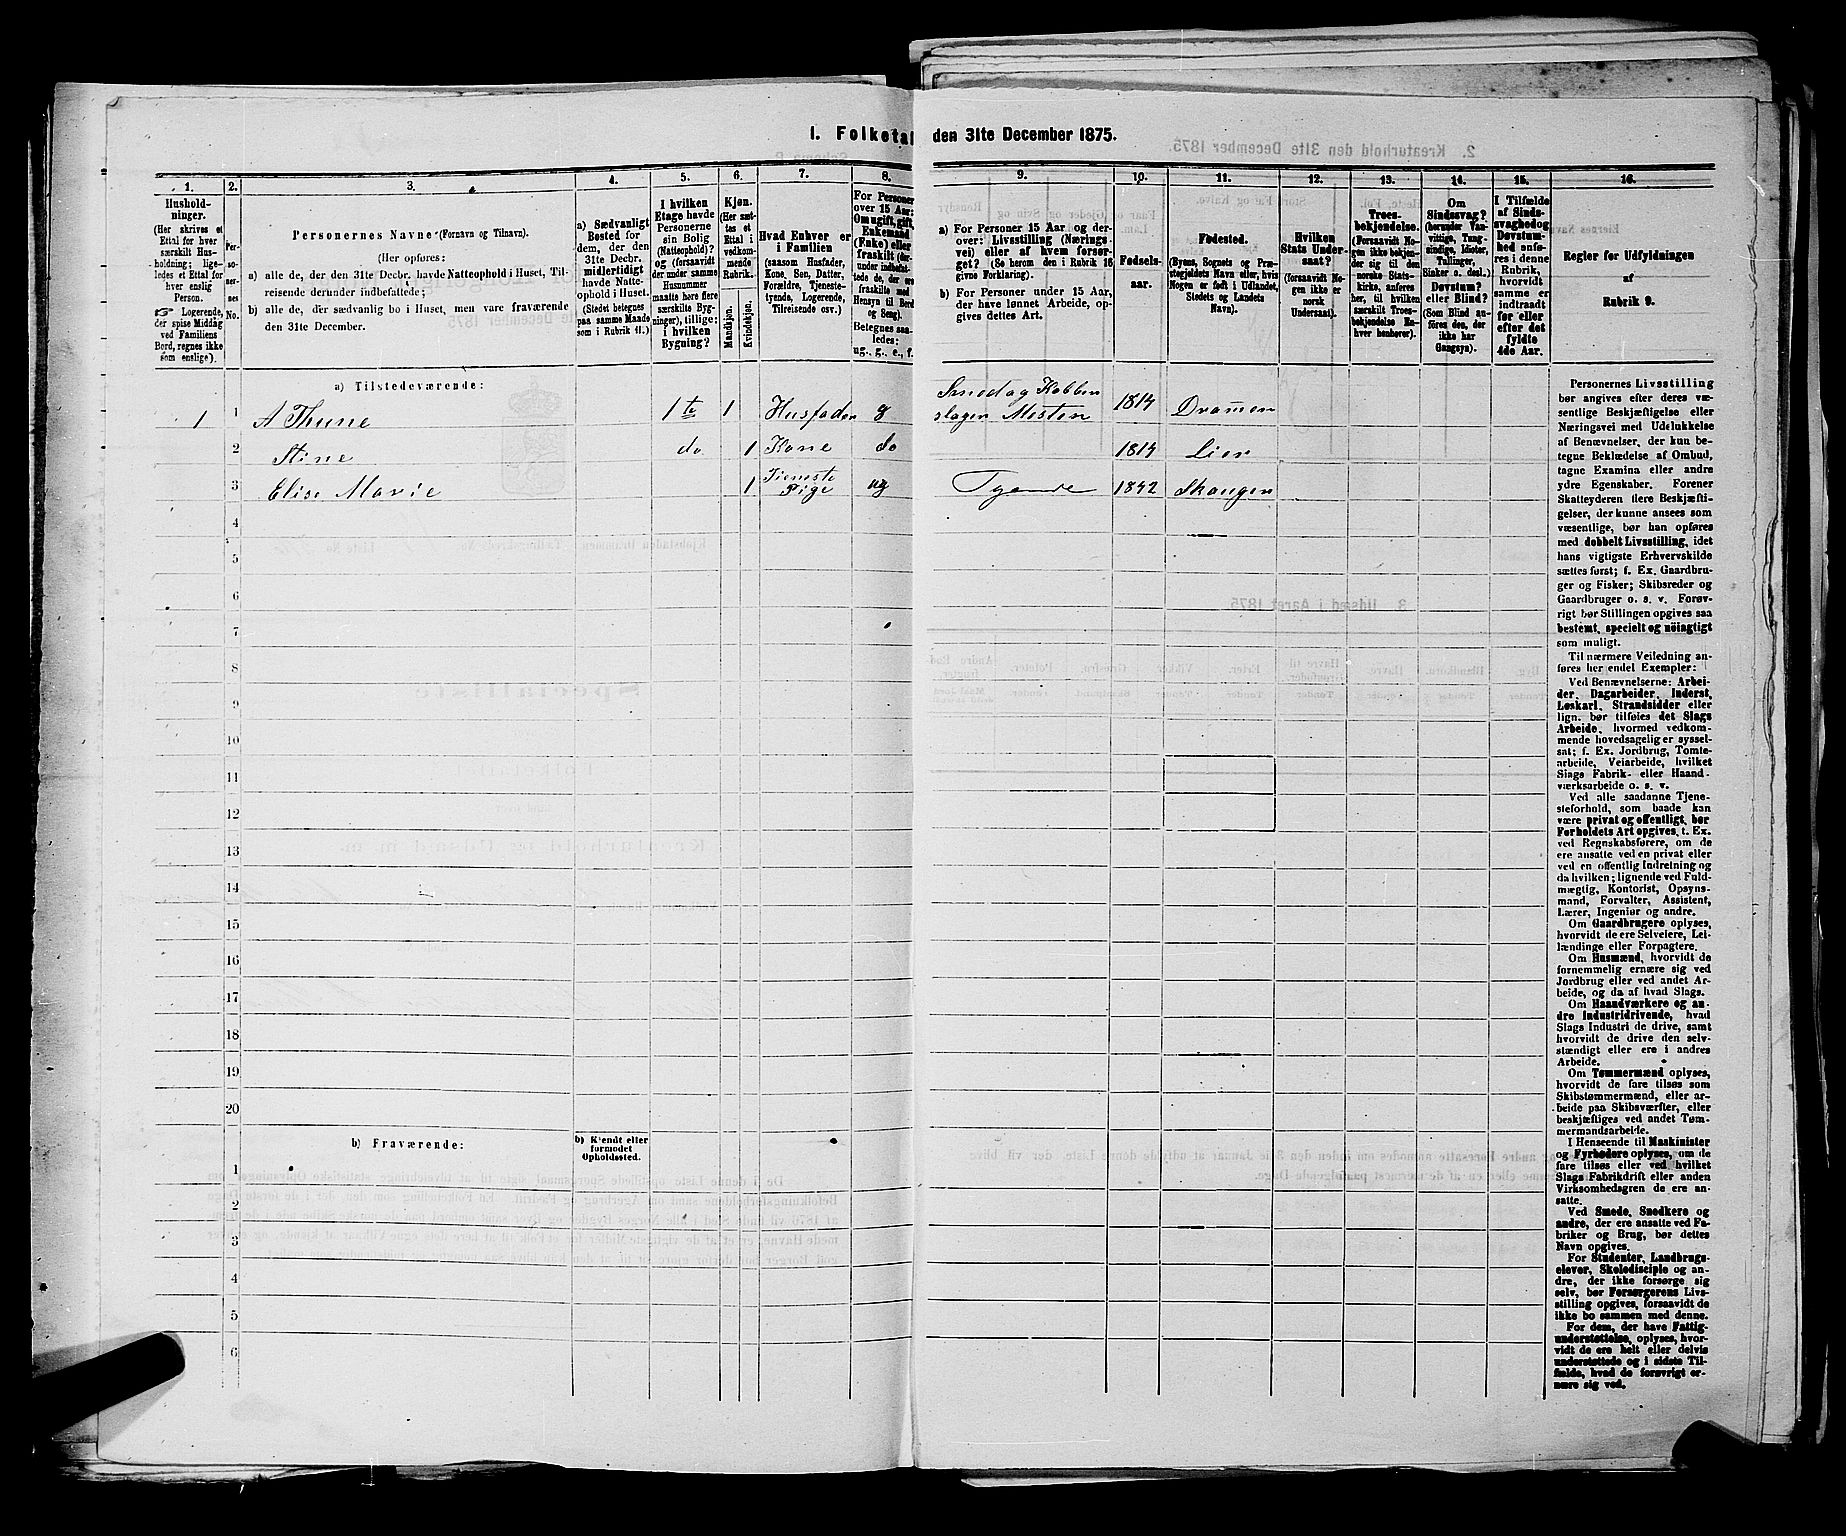 1. Folketal den 31te December 1875.
1.
Hushold-
ninger.
(Her skrives et
Ettal for hver
særskilt Hus-
holdning; lige-
ledes et Ettal for
hver enslig
Person.
☞ Logerende,
der spise Middag
ved Familiens
Bord, regnes ikke
som enslige).
2.
Per-
so-
ner-
nes
No.
3.
Personernes Navne (Fornavn og Tilnavn).
(Her opføres:
a) alle de, der den 31te Decbr. havde Natteophold i Huset, Til-
reisende derunder indbefattede;
b) alle de, der sædvanlig bo i Huset, men vare fraværende
den 31te December.
4.
a) Sædvanligt
Bosted for
dem, der den
31te Decbr.
midlertidigt
havde Natte-
ophold i Huset.
(Stedet betegnes
paa samme Maade
som i Rubrik 11.)
5.
I hvilken
Etage havde
Personerne
sin Bolig
(Natteophold)?
og (forsaavidt
der under samme
Husnummer
maatte høre flere
særskilte Byg-
ninger), tillige:
i hvilken
Bygning?
6.
Kjøn.
(Her sæt-
tes et
Ettal i
vedkom-
mende
Rubrik.
Mandkjøn.
Kvindekjøn.
7.
Hvad Enhver er
i Familien
(saasom Husfader,
Kone, Søn, Datter,
Forældre, Tjeneste-
tyende, Logerende,
Tilreisende osv.)
8.
For Personer
over 15 Aar:
Om ugift, gift,
Enkemand
(Enke) eller
fraskilt (der-
under indbefat-
tede de, der ere
fraskilte med
Hensyn til Bord
og Seng).
Betegnes saa-
ledes:
ug., g., e., f.
9.
a) For Personer 15 Aar og der-
over: Livsstilling (Nærings-
vei) eller af hvem forsør-
get? (Se herom den i Rubrik 16
givne Forklaring).
b) For Personer under 15 Aar,
der have lønnet Arbeide, op-
gives dettes Art.
10.
Fødsels-
aar.
11.
Fødested.
(Byens, Sognets og Præ-
stegjeldets Navn eller, hvis
Nogen er født i Udlandet,
Stedets og Landets
Navn).
12.
Hvilken
Stats Under-
saat?
(forsaavidt No-
gen ikke er
norsk
Undersaat).
13.
Troes-
bekjendelse.
(Forsaavidt No-
gen ikke bekjen-
der sig til den
norske Stats-
kirke, anføres
her, til hvilken
særskilt Troes-
bekjendelse En-
hver henhører).
14.
Om
Sindssvag?
(herunder Van-
vittige, Tung-
sindige, Idioter,
Tullinger,
Sinker o. desl.)
Døvstum?
eller Blind?
(Som Blind an-
føres den, der
ikke har
Gangsyn).
15.
I Tilfælde
af Sinds-
svaghed og
Døvstum-
hed anfø-
res i denne
Rubrik,
hvorvidt
samme er
indtraadt
før eller
efter det
fyldte
4de Aar.
16.
Regler for Udfyldningen
af
Rubrik 9.
a) Tilstedeværende:
1 1 A Thune 1te 1 Husfader g Smed og Kobber
slager Mester 1814 Dramen
2 Stine do 1 Kone do 1814 Lier
3 Elise Marie 1 Tieneste
Pige ug Tyende 1842 Skauger
4
5
6
7
8
9
10
11
12
13
14
15
16
17
18
19
20
b) Fraværende:
b) Kjendt eller
formodet
Opholdssted.
1
2
3
4
5
6
Personernes Livsstilling
bør angives efter deres væ-
sentlige Beskjæftigelse eller
Næringsvei med Udelukkelse
af Benævnelser, der kun be-
tegne Beklædelse af Ombud,
tagne Examina eller andre
ydre Egenskaber. Forener
Skatteyderen flere Beskjæfti-
gelser, der kunne ansees som
væsentlige, bør han opføres
med dobbelt Livsstilling, idet
hans vigtigste Erhvervskilde
sættes først; f. Ex. Gaardbru-
ger og Fisker; Skibsreder og
Gaardbruger o. s. v. Forøv-
rigt bør Stillingen opgives saa
bestemt, specielt og nøiagtigt
som muligt.
Til nærmere Veiledning an-
føres her endel Exempler:
Ved Benævnelserne: Arbei-
der, Dagarbeider, Inderst,
Løskarl, Strandsidder eller
lign. bør tilføies det Slags
Arbeide, hvormed vedkom-
mende hovedsagelig er syssel-
sat; f. Ex. Jordbrug, Tomte-
arbeide, Veiarbeide, hvilket
Slags Fabrik- eller Haand-
værksarbeide o. s. v.
Ved alle saadanne Tjene-
steforhold, som baade kan
være privat og offentligt, bør
Forholdets Art opgives, t. Ex.
ved Regnskabsførere, om de
ere ansatte ved en privat eller
ved en offentlig Indretning og
da hvilken; lignende ved Fuld-
mægtig, Kontorist, Opsyns-
mand, Forvalter, Assistent,
Lærer, Ingeniør og andre.
Om Gaardbrugere oplyses,
hvorvidt de ere Selveiere, Lei-
lændinge eller Forpagtere.
Om Husmænd, hvorvidt de
fornemmelig ernære sig ved
Jordbrug eller ved andet Ar-
beide, og da af hvad Slags.
Om Haandværkere og an-
dre industridrivende, hvad
Slags Industri de drive, samt
hvorvidt de drive den selv-
stændigt eller ere i andres
Arbeide.
Om Tømmermænd oplyses,
hvorvidt de fare tilsøs som
Skibstømmermænd, eller ar-
beide paa Skibsværfter, eller
beskjæftiges ved andet Tøm-
mermandsarbeide.
I Henseende til Maskinister
og Fyrbødere oplyses, om de
fare tilsøs eller ved hvilket
Slags Fabrikdrift eller anden
Virksomhedsgren de ere an-
satte.
Ved Smede, Snedkere og
andre, der ere ansatte ved Fa-
briker og Brug, bør dettes
Navn opgives.
For Studenter, Landbrugs-
elever, Skoledisciple og an-
dre, der ikke forsørge sig
selv, bør Forsørgerens Livs-
stilling opgives, forsaavidt de
ikke bo sammen med denne.
For dem, der have Fattig-
understøttelse, oplyses, hvor-
vidt de ere helt eller delvis
understøttede og i sidste Til-
fælde, hvad de forøvrigt er-
nære sig ved.